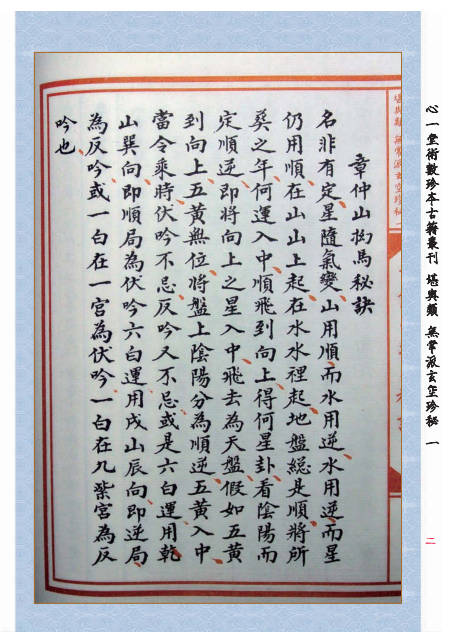 心一堂術數珍本古籍叢刊 堪輿類 無常派玄空珍秘 一
二
堪輿類 無常派玄空珍秘 一
章仲山拗馬秘訣
名非有定星隨氣變山用順而水用逆水用逆而星
仍用順在山山上起在水水裡起地盤總是順將所
葬之年何運入中順飛到向上得何星卦看陰陽而
定順逆即將向上之星入中飛去為天盤假如五黃
到向上五黃無位將盤上陰陽分為順逆五黃入中
當令乘時伏吟不忌反吟又不忌或是六白運用乾
山巽向即順局為伏吟六白運用戌山辰向即逆局
為反吟或一白在一宮為伏吟一白在九紫宮為反
吟也